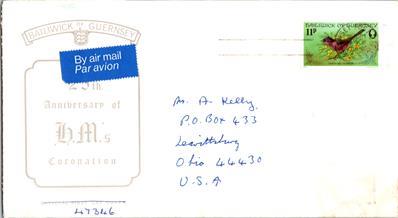 BAILIWICK OF GUERNSEY
By air mail
Par avion
25th
Anniversary of
H.M's
Coronation
BAILIWICK OF GUERNSEY
11P
Ms. A Kelly,
P.O. Box 433
Leavittsburg
Ohio 44430
U.S.A